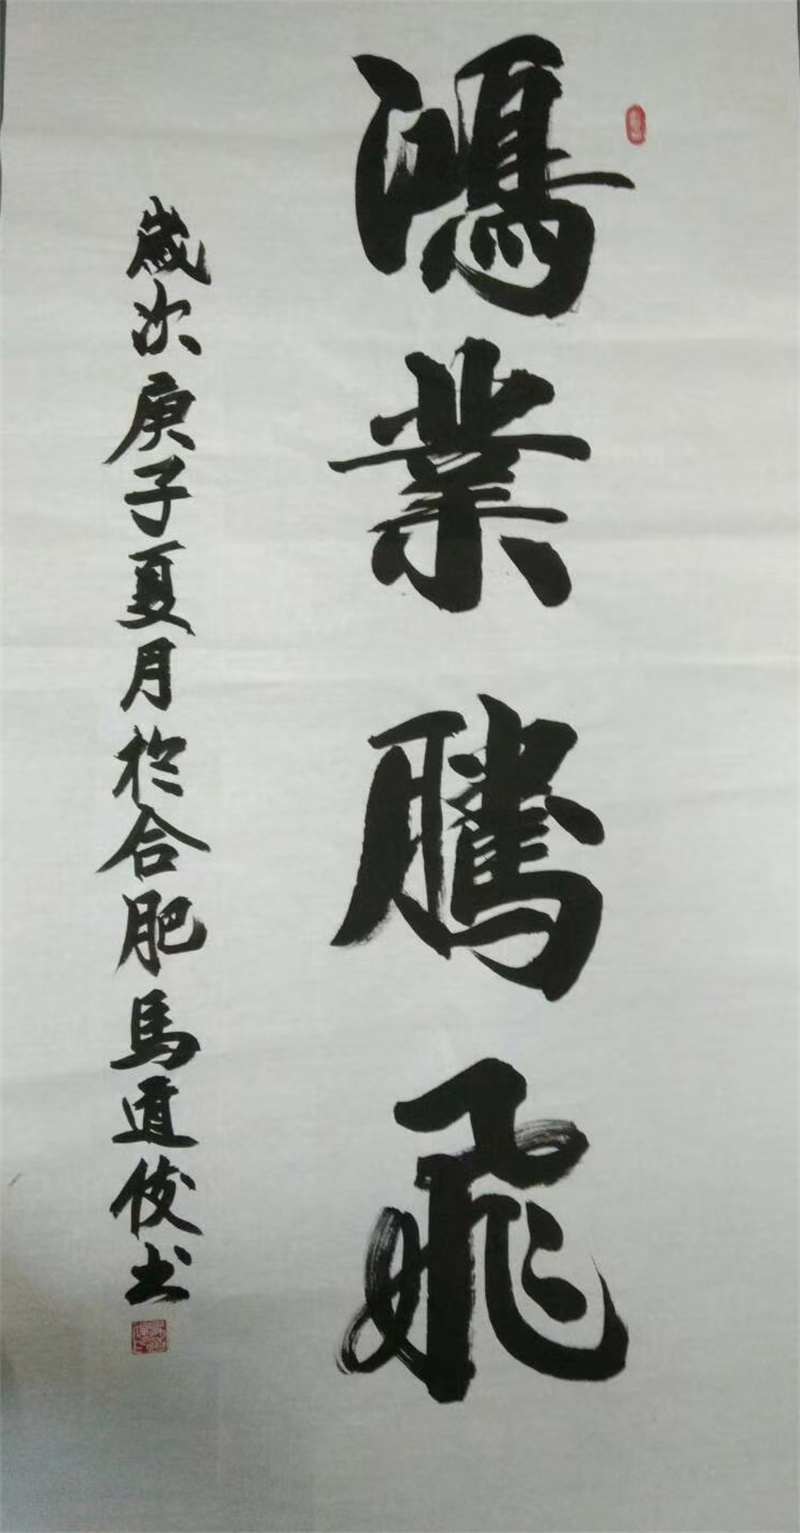 鴻業騰飛
歲次庚子夏月於合肥馬道俊书